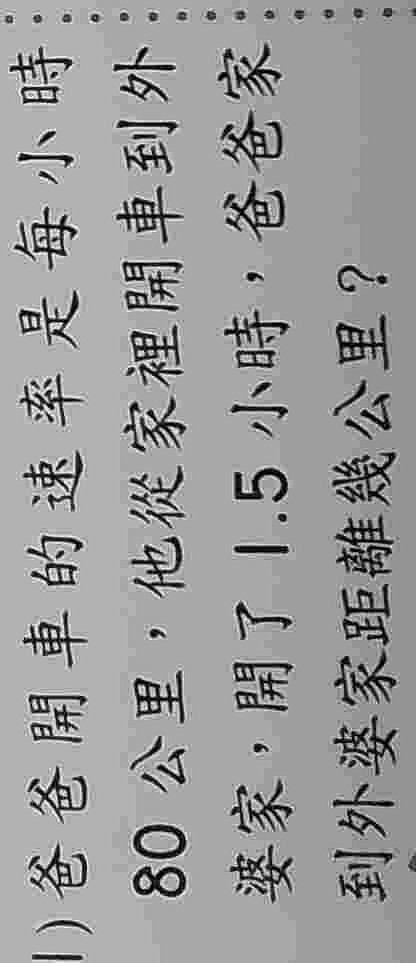 1)爸爸開車的速率是每小時
80 公里，他從家裡開車到外
婆家，開了 1.5 小時，爸爸家
到外婆家距離幾公里？